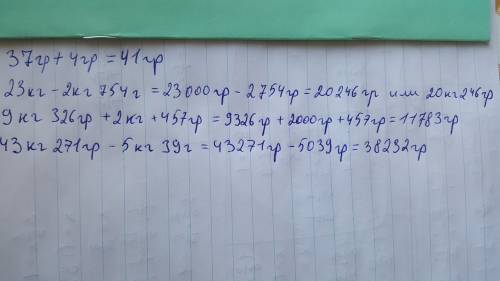 37гр + 4гр = 41гр
23кг - 2кг 754г = 23000гр - 2754гр = 20246гр или 20кг246гр
9 кг 326гр + 2кг + 457гр = 9326гр + 2000гр + 457гр = 11783гр
43 кг 271гр - 5кг 39г = 43271гр - 5039гр = 38232гр